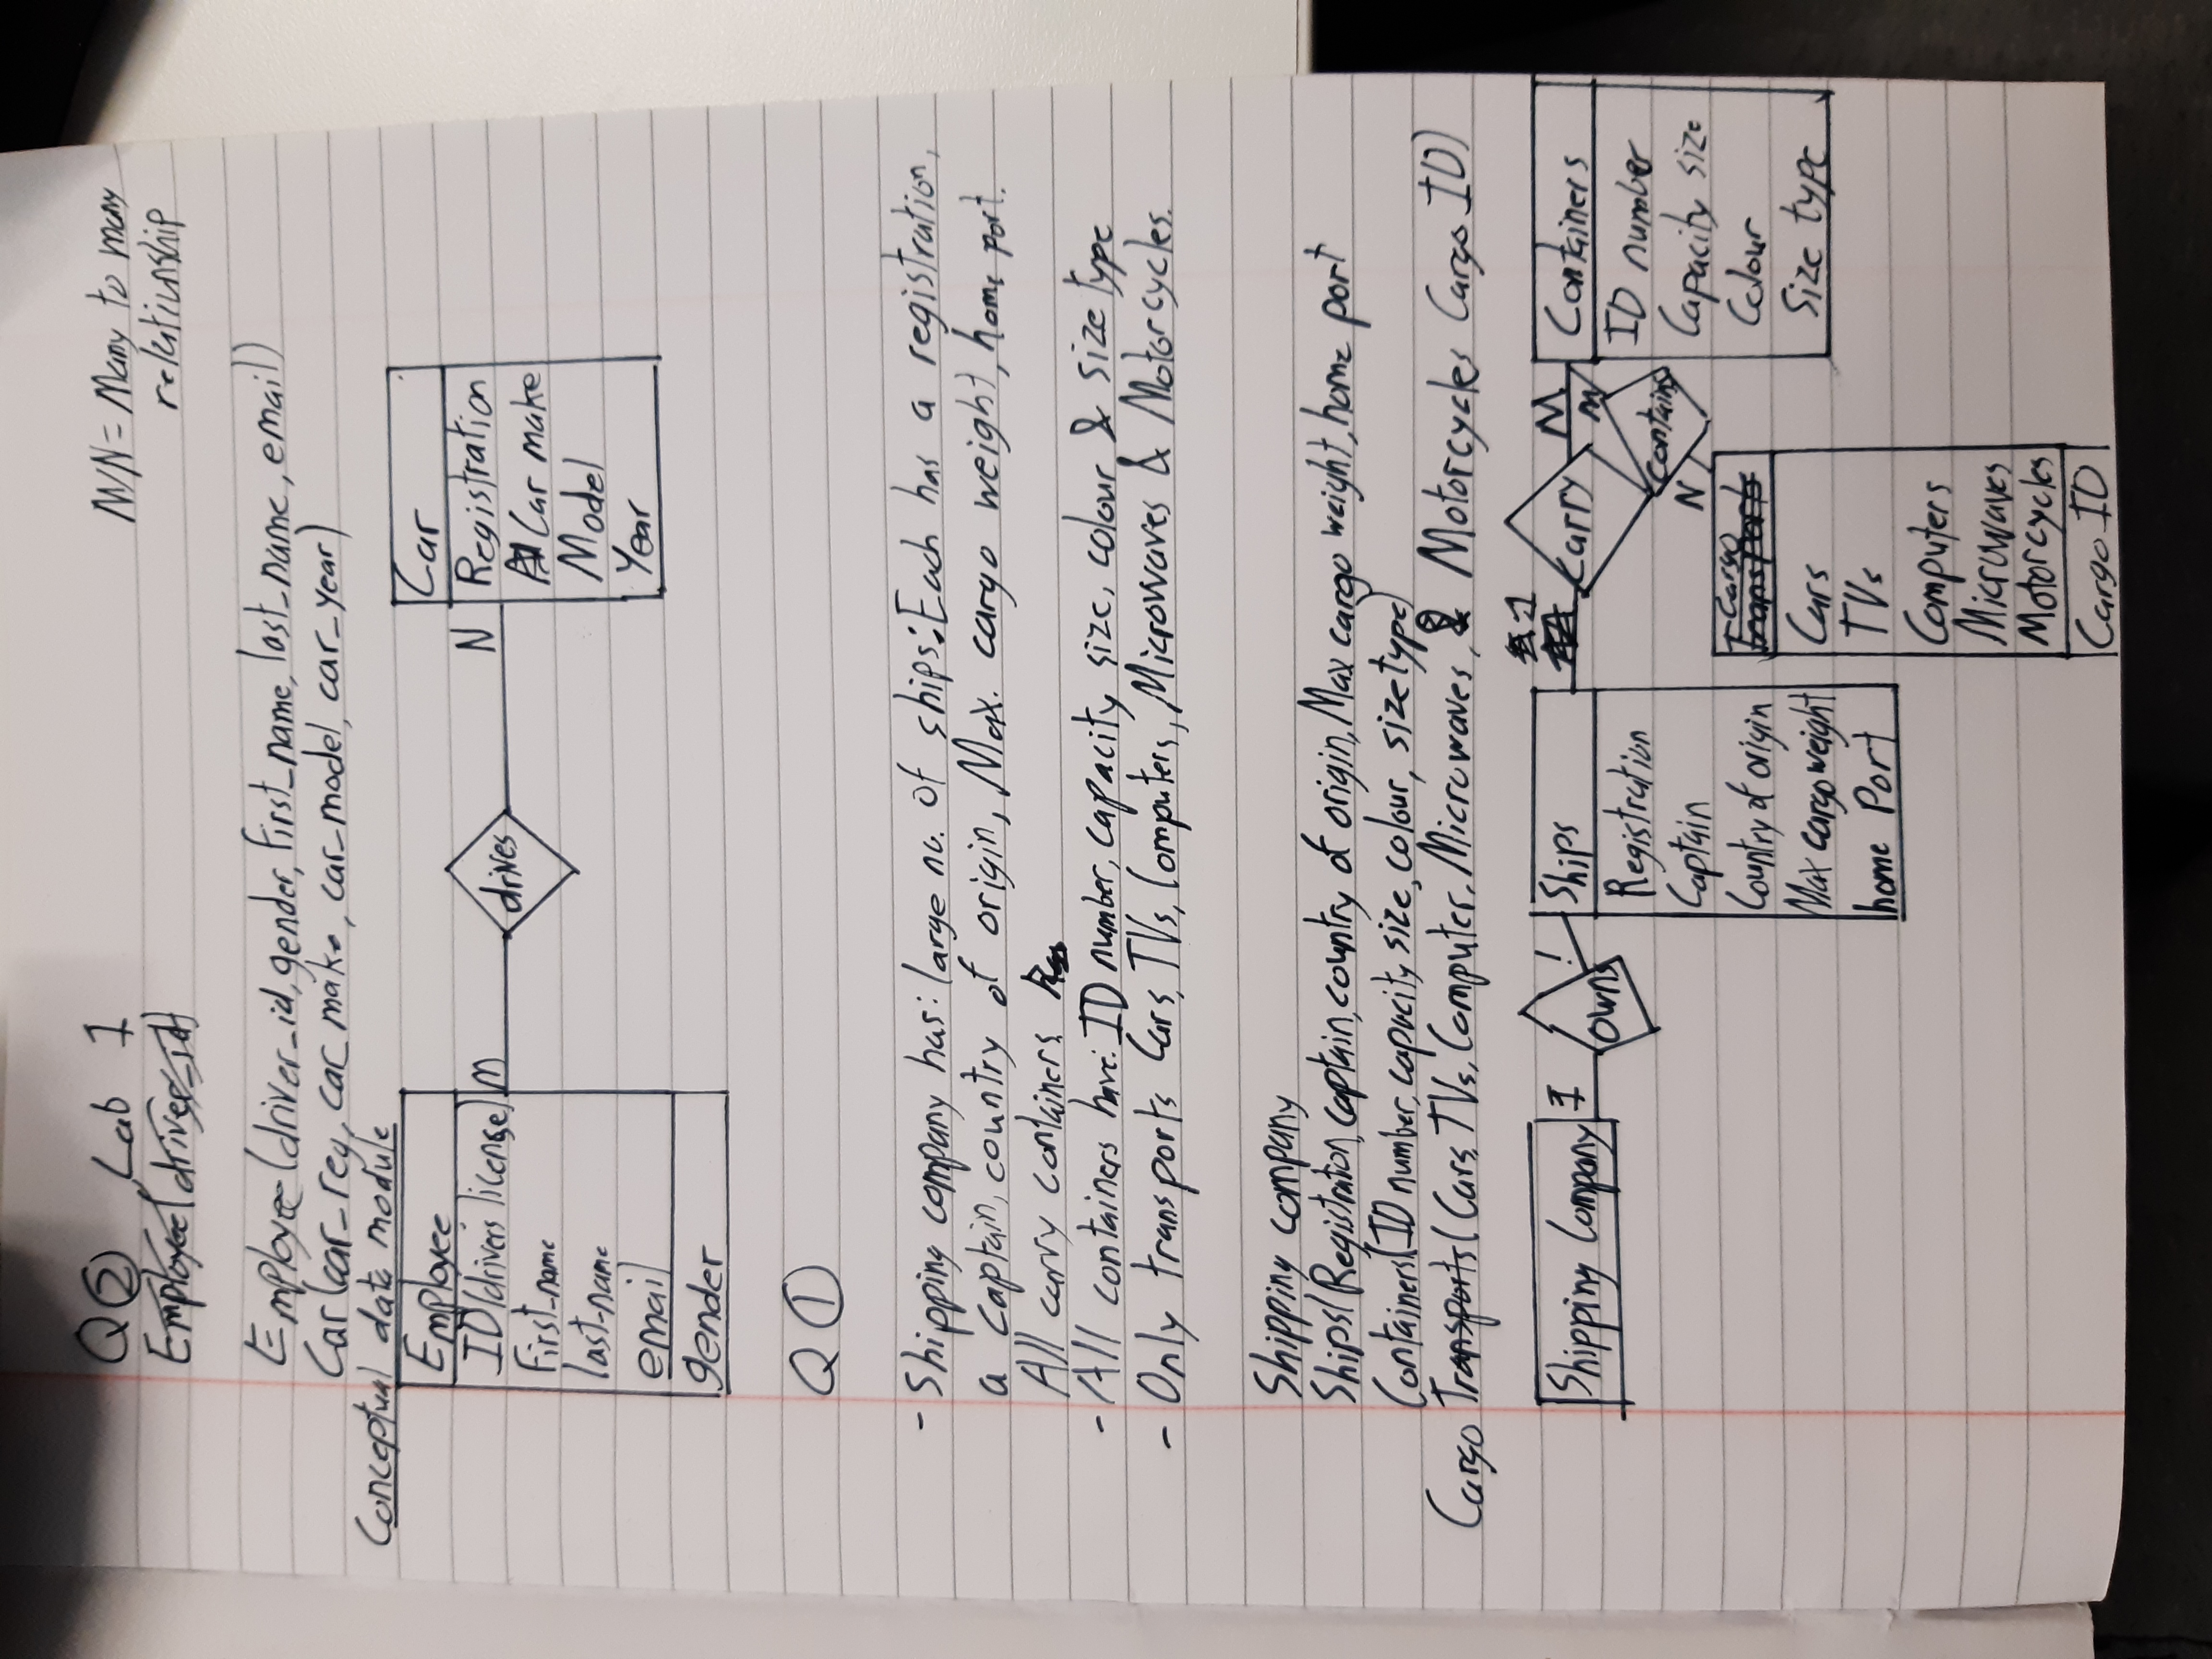 Q② Lab 1
M/N = Many to many
relationship
Employee(driver_id)
Employee(driver_id, gender, first_name, last_name, email)
Car(car_reg, car_make, car_model, car_year)
Conceptual data module
Employee
ID(drivers license)
First_name
last_name
email
gender
M
drives
N
Car
Registration
Car make
Model
Year
Q①
- Shipping company has: large no. of ships: Each has a registration,
a captain, country of origin, Max. cargo weight, home port.
All carry containers.
- All containers have: ID number, capacity size, colour & size type
- Only transports Cars, TVs, Computers, Microwaves & Motorcycles.
Shipping company
Ships(Registration, captain, country of origin, Max cargo weight, home port
Containers(ID number, capacity size, colour, size type)
Cargo Transports(Cars, TVs, Computer, Microwaves, & Motorcycles Cargo ID)
Shipping Company
1
owns
Ships
Registration
Captain
Country of origin
Max cargo weight
home Port
1
Carry
M
M
Contains
N
Containers
ID number
Capacity size
Colour
Size type
Cargo
Transports
Cars
TVs
Computers
Microwaves
Motorcycles
Cargo ID